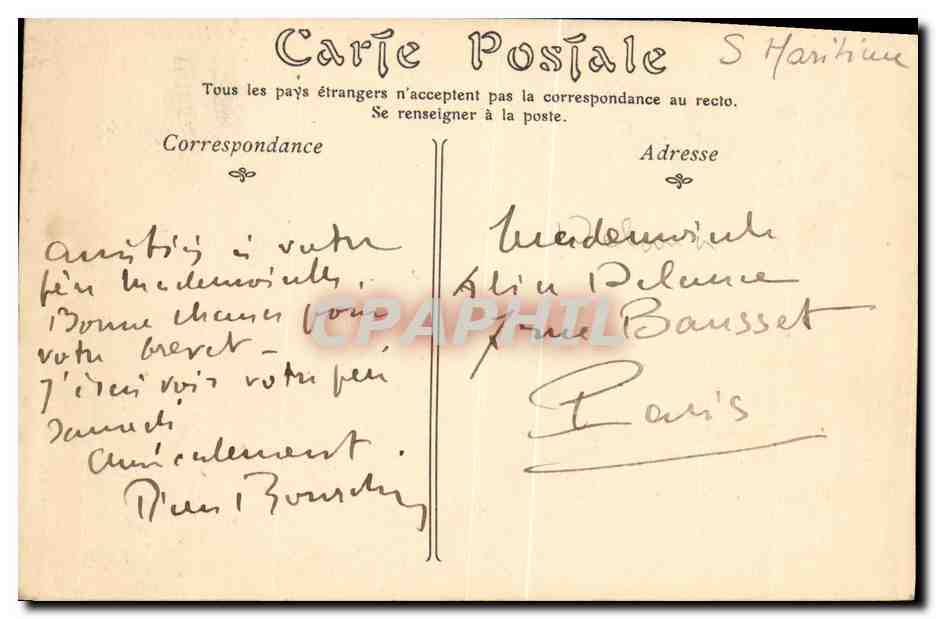 Carte Postale
S Maritime
Tous les pays étrangers n'acceptent pas la correspondance au recto.
Se renseigner à la poste.
Correspondance
Adresse
amitiés à votre
père Mademoiselle,
Bonne chance pour
votre brevet –
J'irai voir votre père
samedi
amicalement.
Mademoiselle
Delance
7 rue Bausset
Paris
CPAPHIL